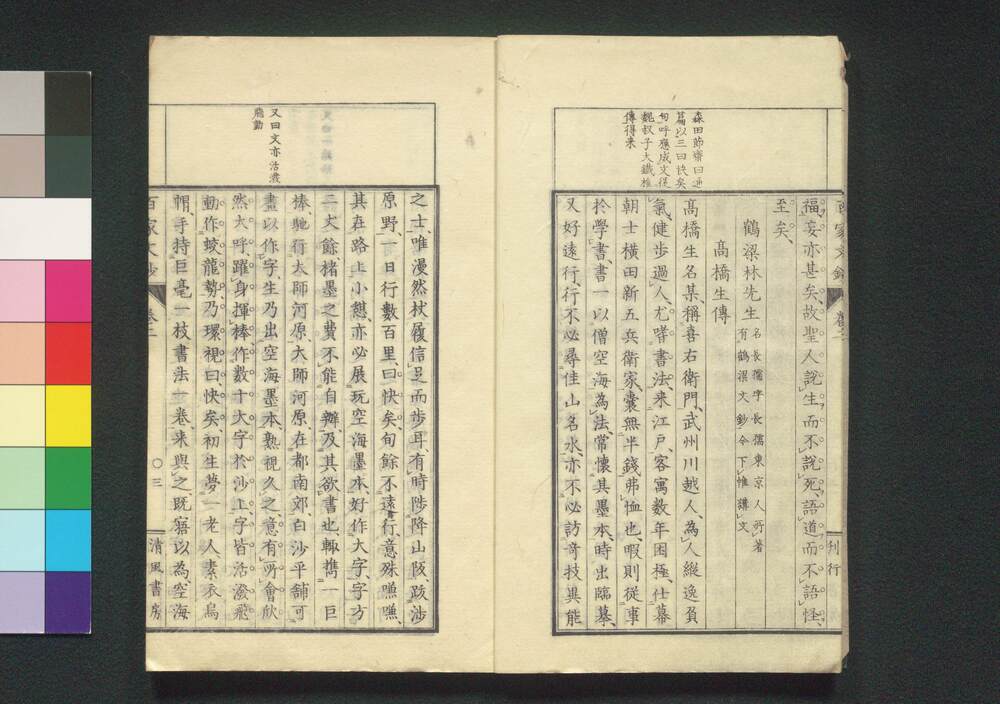 森田節齋曰通
篇以三曰快矣
句呼應成文從
魏叔子大鐵椎
傳得来
福妄亦甚矣、故聖人說生而不說死、語道而不語怪、
至矣、
鶴梁林先生 名長孺字長孺東京人所著
有鶴梁文鈔今下惟講文
高橋生傳
高橋生名某、稱喜右衛門、武州川越人、為人縱逸負
氣、健歩過人、尤嗜書法、来江戸、客寓数年困極、仕幕
朝士横田新五兵衛家、囊無半錢、弗恤也、暇則從事
於學書、書一以僧空海為法、常懷其墨本、時出臨摹、
又好遠行、行不必尋佳山名水、亦不必訪奇技異能
刋行
又曰文亦活溌
飛動
之士、唯漫然杖屨信足而步耳、有時陟降山阪、跋涉
原野、一日行數百里、曰快矣、旬餘不遠行、意殊嗛嗛、
其在路上小憩、亦必展玩空海墨本、好作大字、字方
二丈餘、楮墨之費不能自辦、及其欲書也、輙携一巨
捧、馳行大師河原、大師河原在都南郊、白沙平舖可
畫以作字、生乃出空海墨本、熟視久之、意有所會、欣
然大呼、躍身揮棒、作数十大字於沙上、字皆活溌飛
動、作蛟龍勢、乃環視曰、快矣、初生夢一老人、素衣烏
帽、手持巨毫一枝書法一卷、来與之、既寤以為空海
百家文鈔 卷二
〇三
清風書房